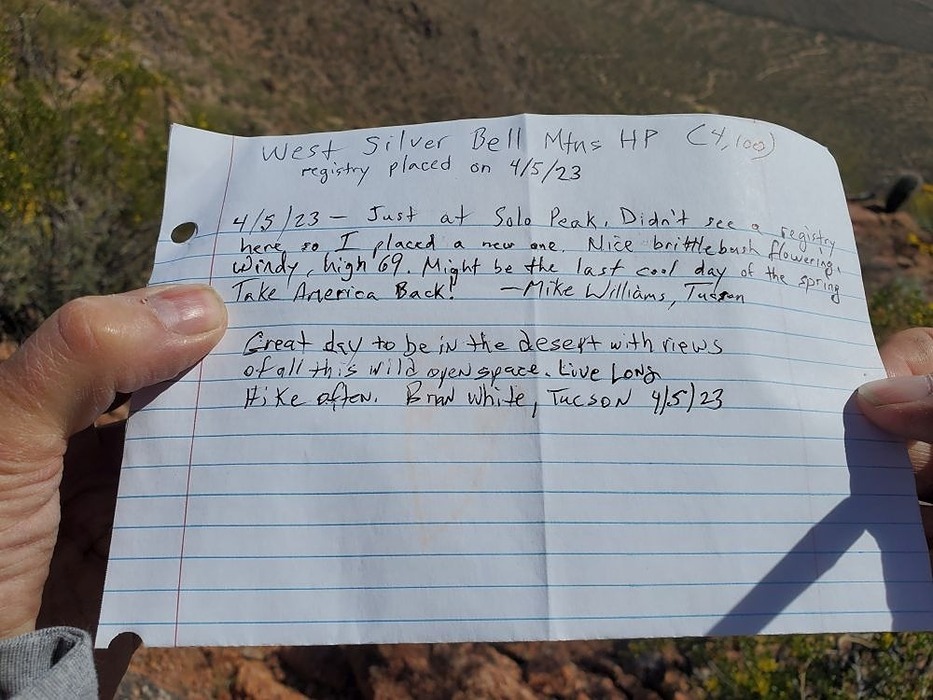 West Silver Bell Mtns HP (4,100)
registry placed on 4/5/23
4/5/23 - Just at Solo Peak. Didn't see a registry
here, so I placed a new one. Nice brittlebush flowering.
Windy, high 69. Might be the last cool day of the spring
Take America Back! —Mike Williams, Tucson
Great day to be in the desert with views
of all this wild open space. Live Long
Hike often. Brian White, Tucson 4/5/23